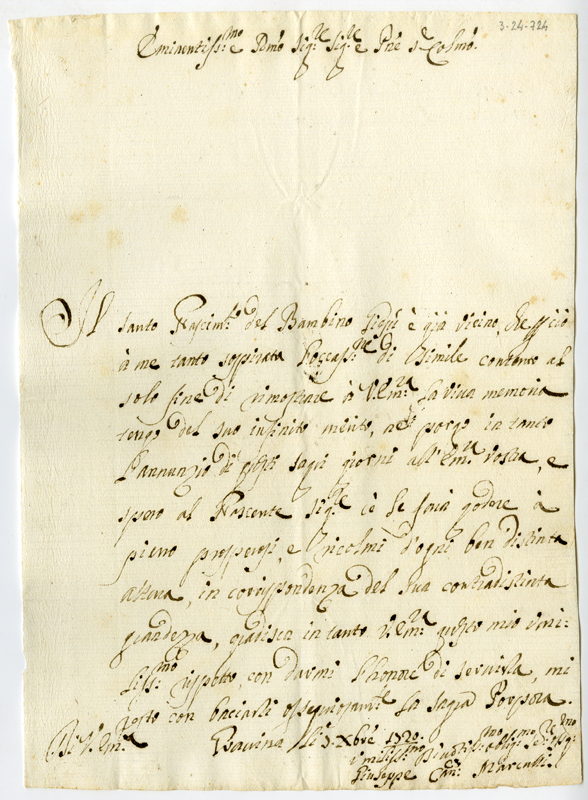 3-24-724
Eminentiss.mo e Rmo Sig.re Sig.re e Pne Colmo.
Il santo Nascim.to del Bambino Giesù è già vicino,
à me tanto sospirata di simile contento al
solo fine di rimostrare à V. Em.za la viva memoria
tengo del suo infinito merito, porgo in tanto
l'annunzio di questi sagri giorni all'Em.za Vostra, e
spero al Nascente Sig.re ce le farà godere à
pieno prosperosi, e ricolmi d'ogni ben distinta
in corrispondenza del sua contradistinta
grandezza, gradisca in tanto V. Em.za questo mio umi-
liss.mo rispetto, con darmi l'honore di servirla, mi
resto con baciarli ossequiosam.te la sagra Porpora.
Di V. Em.za Gravina li 3. Xbre 1720.
Umiliss.mo Divotiss.mo Oblig.mo
Giuseppe Can.co